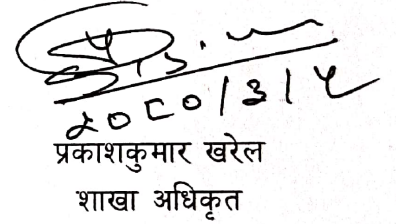 २०८०/३/५
प्रकाशकुमार खरेल
शाखा अधिकृत